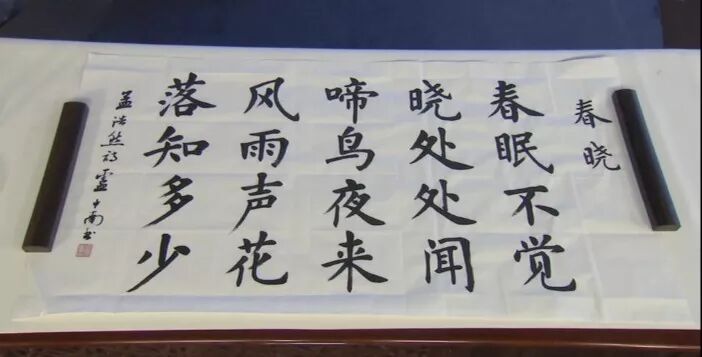 春晓
春眠不觉
晓处处闻
啼鸟夜来
风雨声花
落知多少
孟浩然诗 中南书